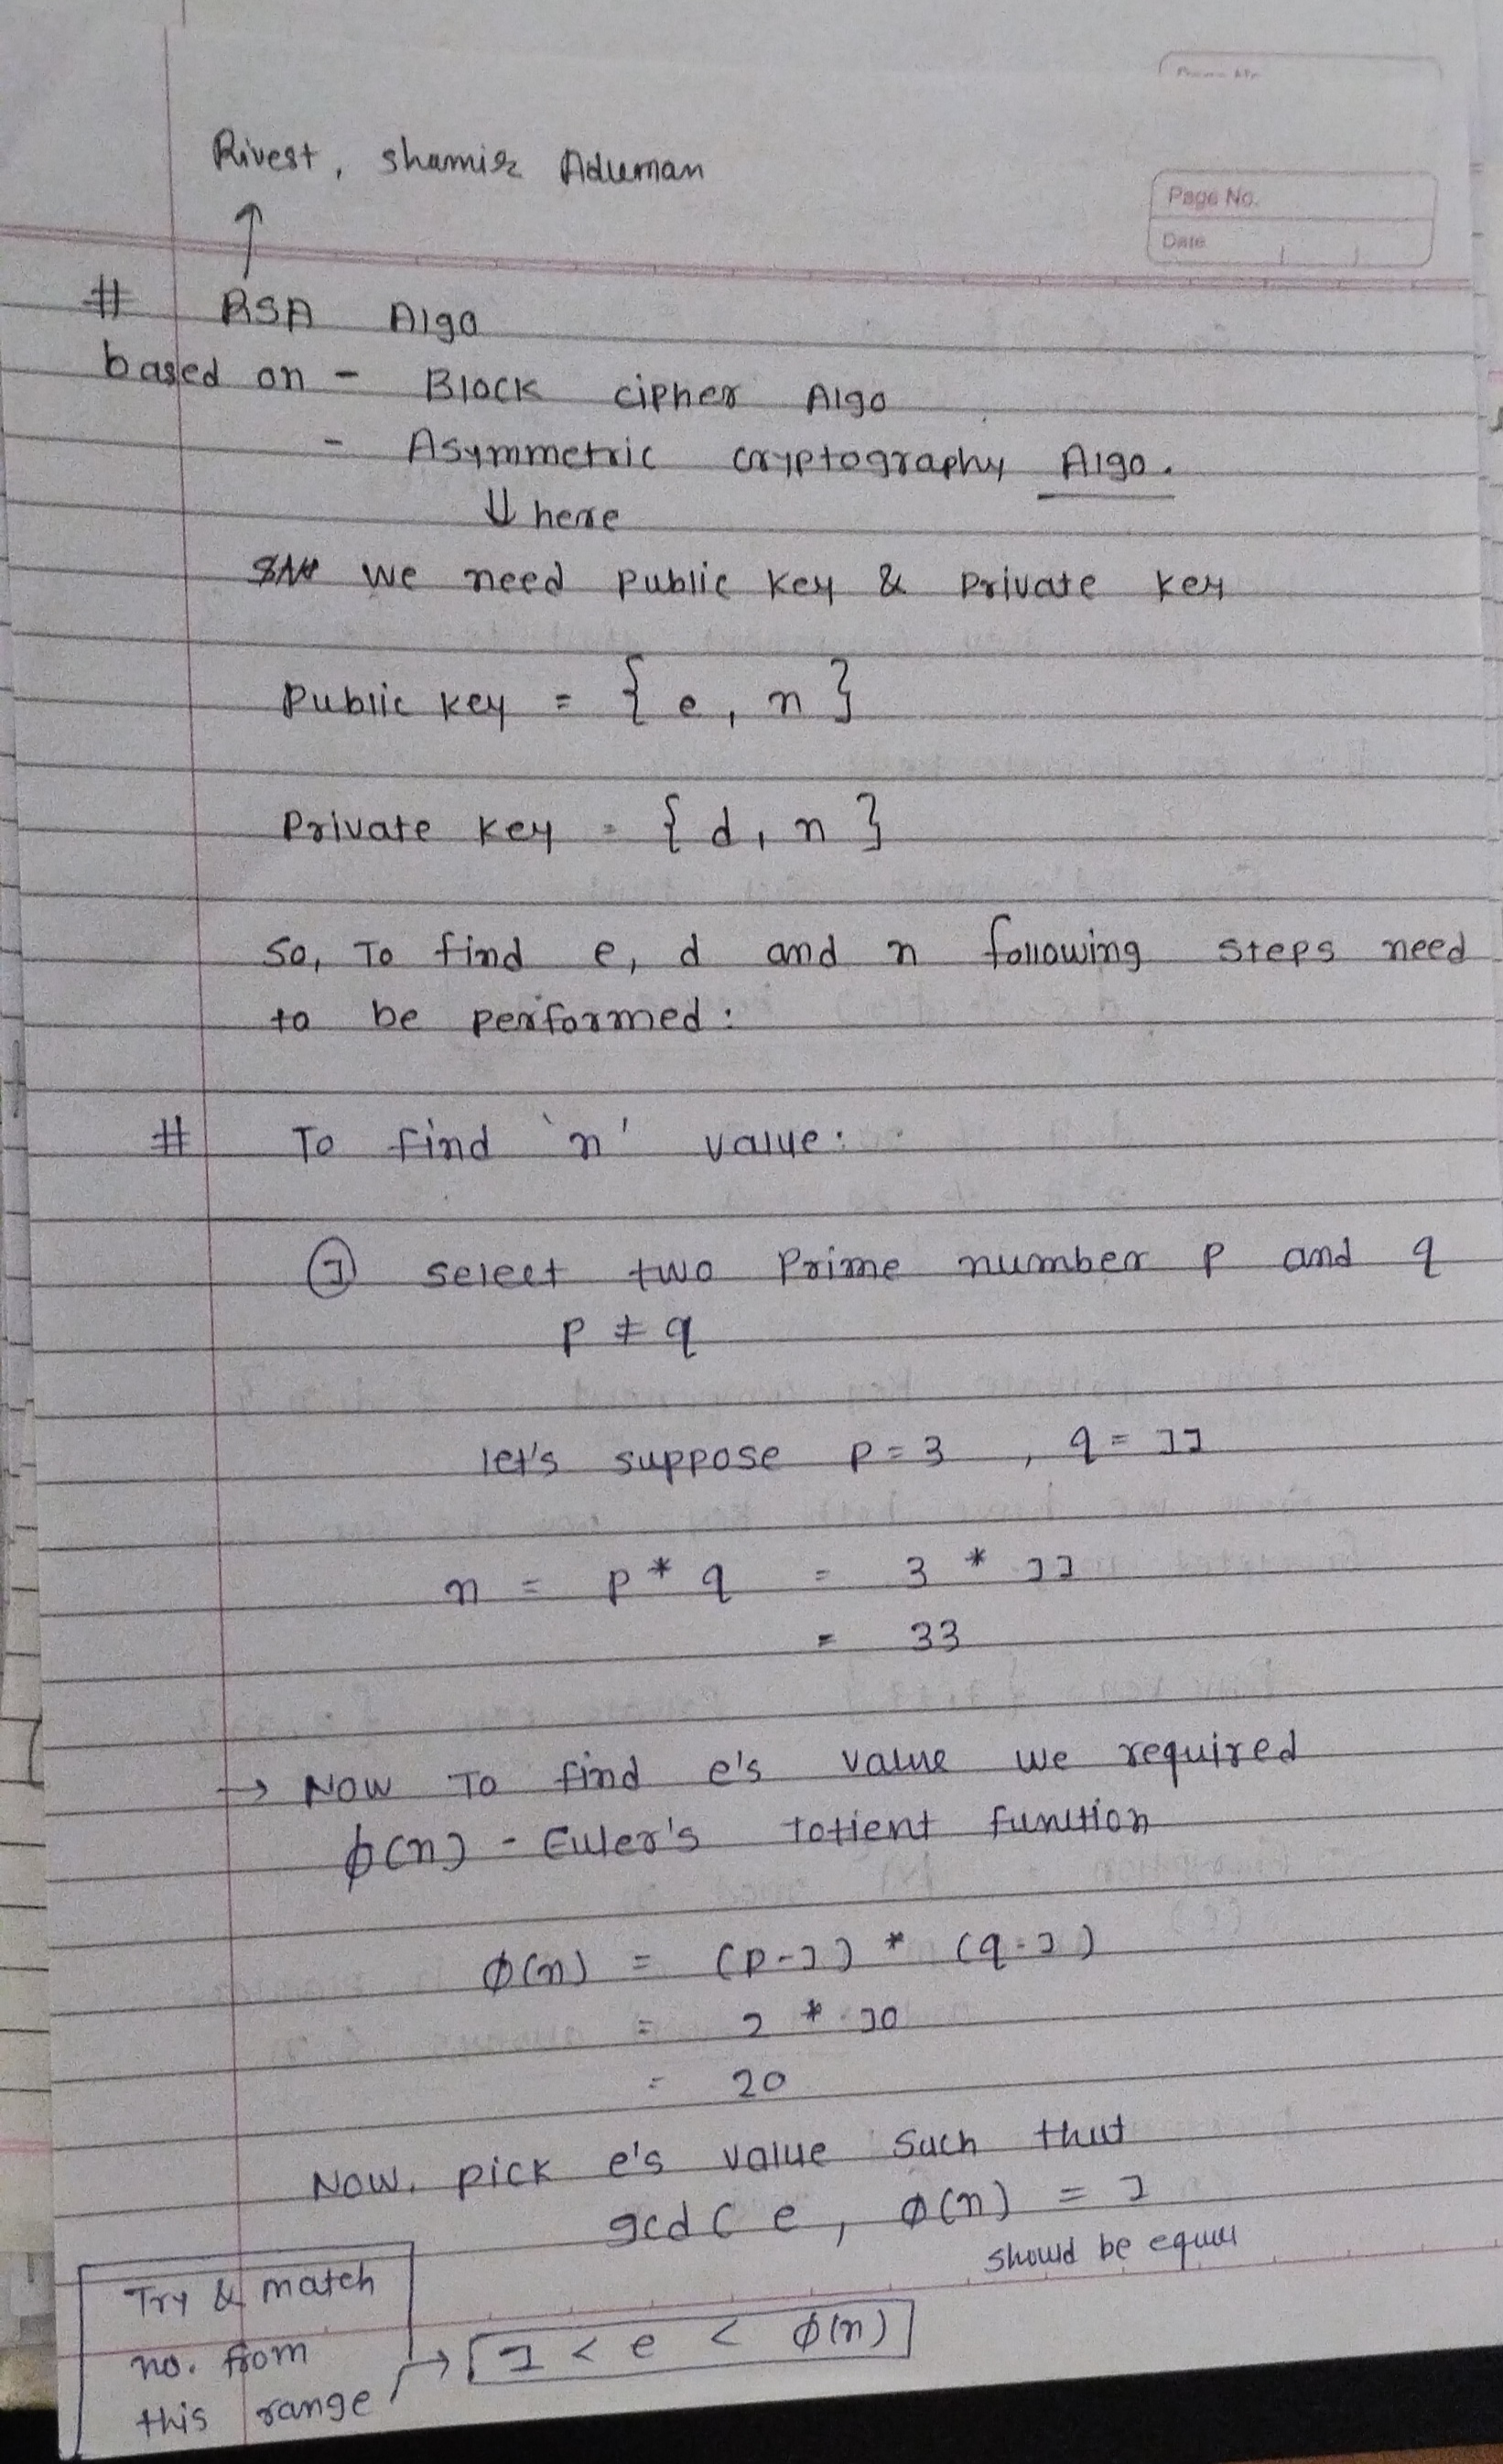 Rivest, shamir Adleman
Page No.
Date
# RSA Algo
based on - Block cipher Algo
- Asymmetric cryptography Algo.
⇓ here
we need public key & private key
Public key = { e, n }
Private key = { d, n }
So, To find e, d and n following steps need
to be performed:
# To find 'n' value:
① select two Prime number p and q
p ≠ q
let's suppose p = 3 , q = 11
n = p * q = 3 * 11
= 33
→ Now To find e's value we required
ϕ(n) - Euler's totient function
ϕ(n) = (p-1) * (q-1)
= 2 * 10
= 20
Now, pick e's value such that
gcd ( e, ϕ(n) = 1
should be equal
Try & match
no. from
this range
→ 1 < e < ϕ(n)